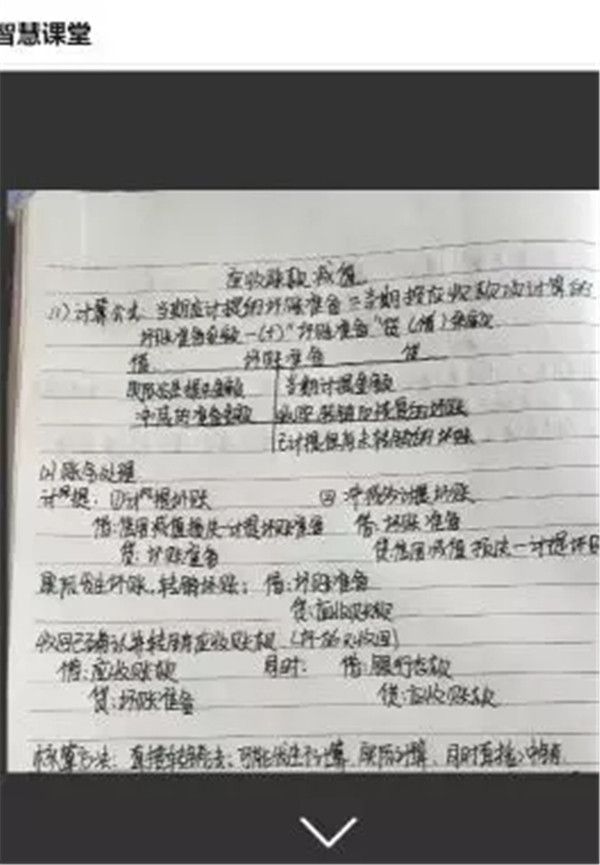 智慧课堂
应收账款减值
(1)计算公式 当期应计提的坏账准备=当期按应收款项计算的
坏账准备金额-(+)"坏账准备"贷(借)余额
借 坏账准备 贷
实际发生损失金额 当期计提金额
冲减的准备金额
已计提但尚未转销的坏账
(2)账务处理
计提:①计提坏账 ②冲减多计提坏账
借:信用减值损失一计提坏账准备 借:坏账准备
贷:坏账准备 贷:信用减值损失一计提坏账
实际发生坏账,转销坏账: 借:坏账准备
贷:应收账款
收回已确认并转销应收账款
借:应收账款 同时: 借:银行存款
贷:坏账准备 贷:应收账款
核算方法:直接转销法: